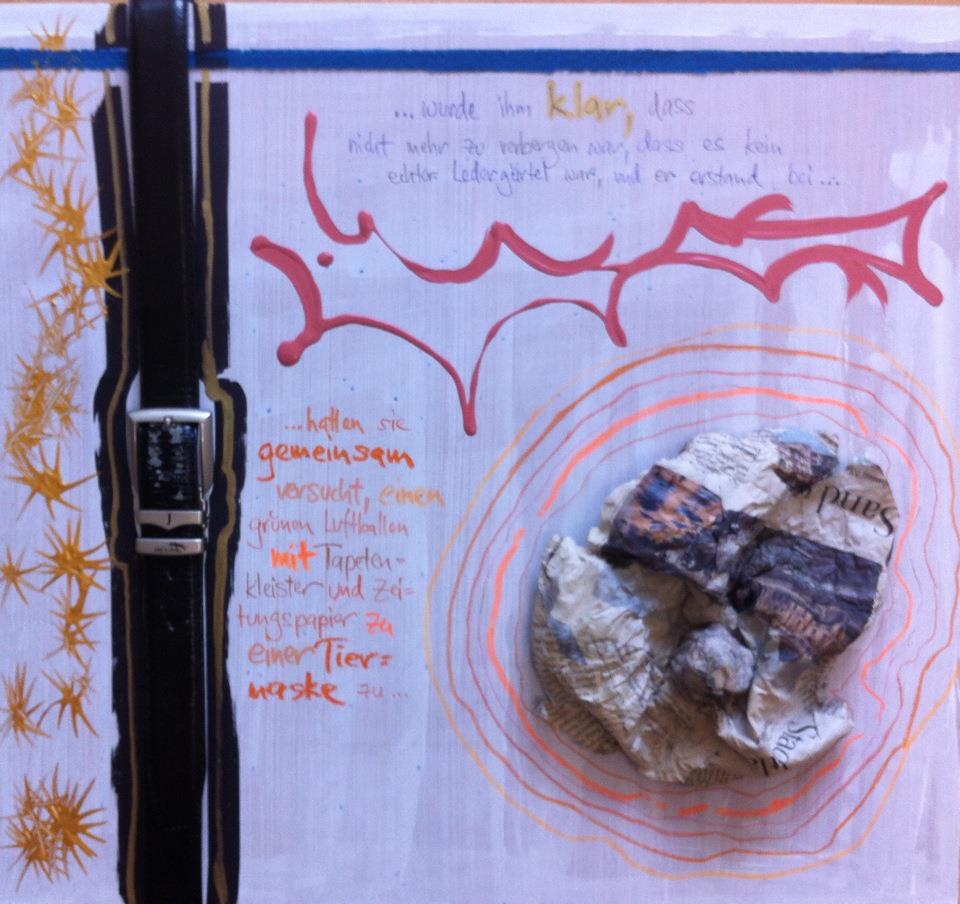 ...wurde ihm klar, dass
nicht mehr zu verbergen war, dass es kein
echter Ledergürtel war, und er erstand bei...
...hatten sie
gemeinsam
versucht, einen
grünen Luftballon
mit Tapeten-
kleister und Zei=
tungspapier zu
einer Tier=
maske zu...
Sand
Stadtle